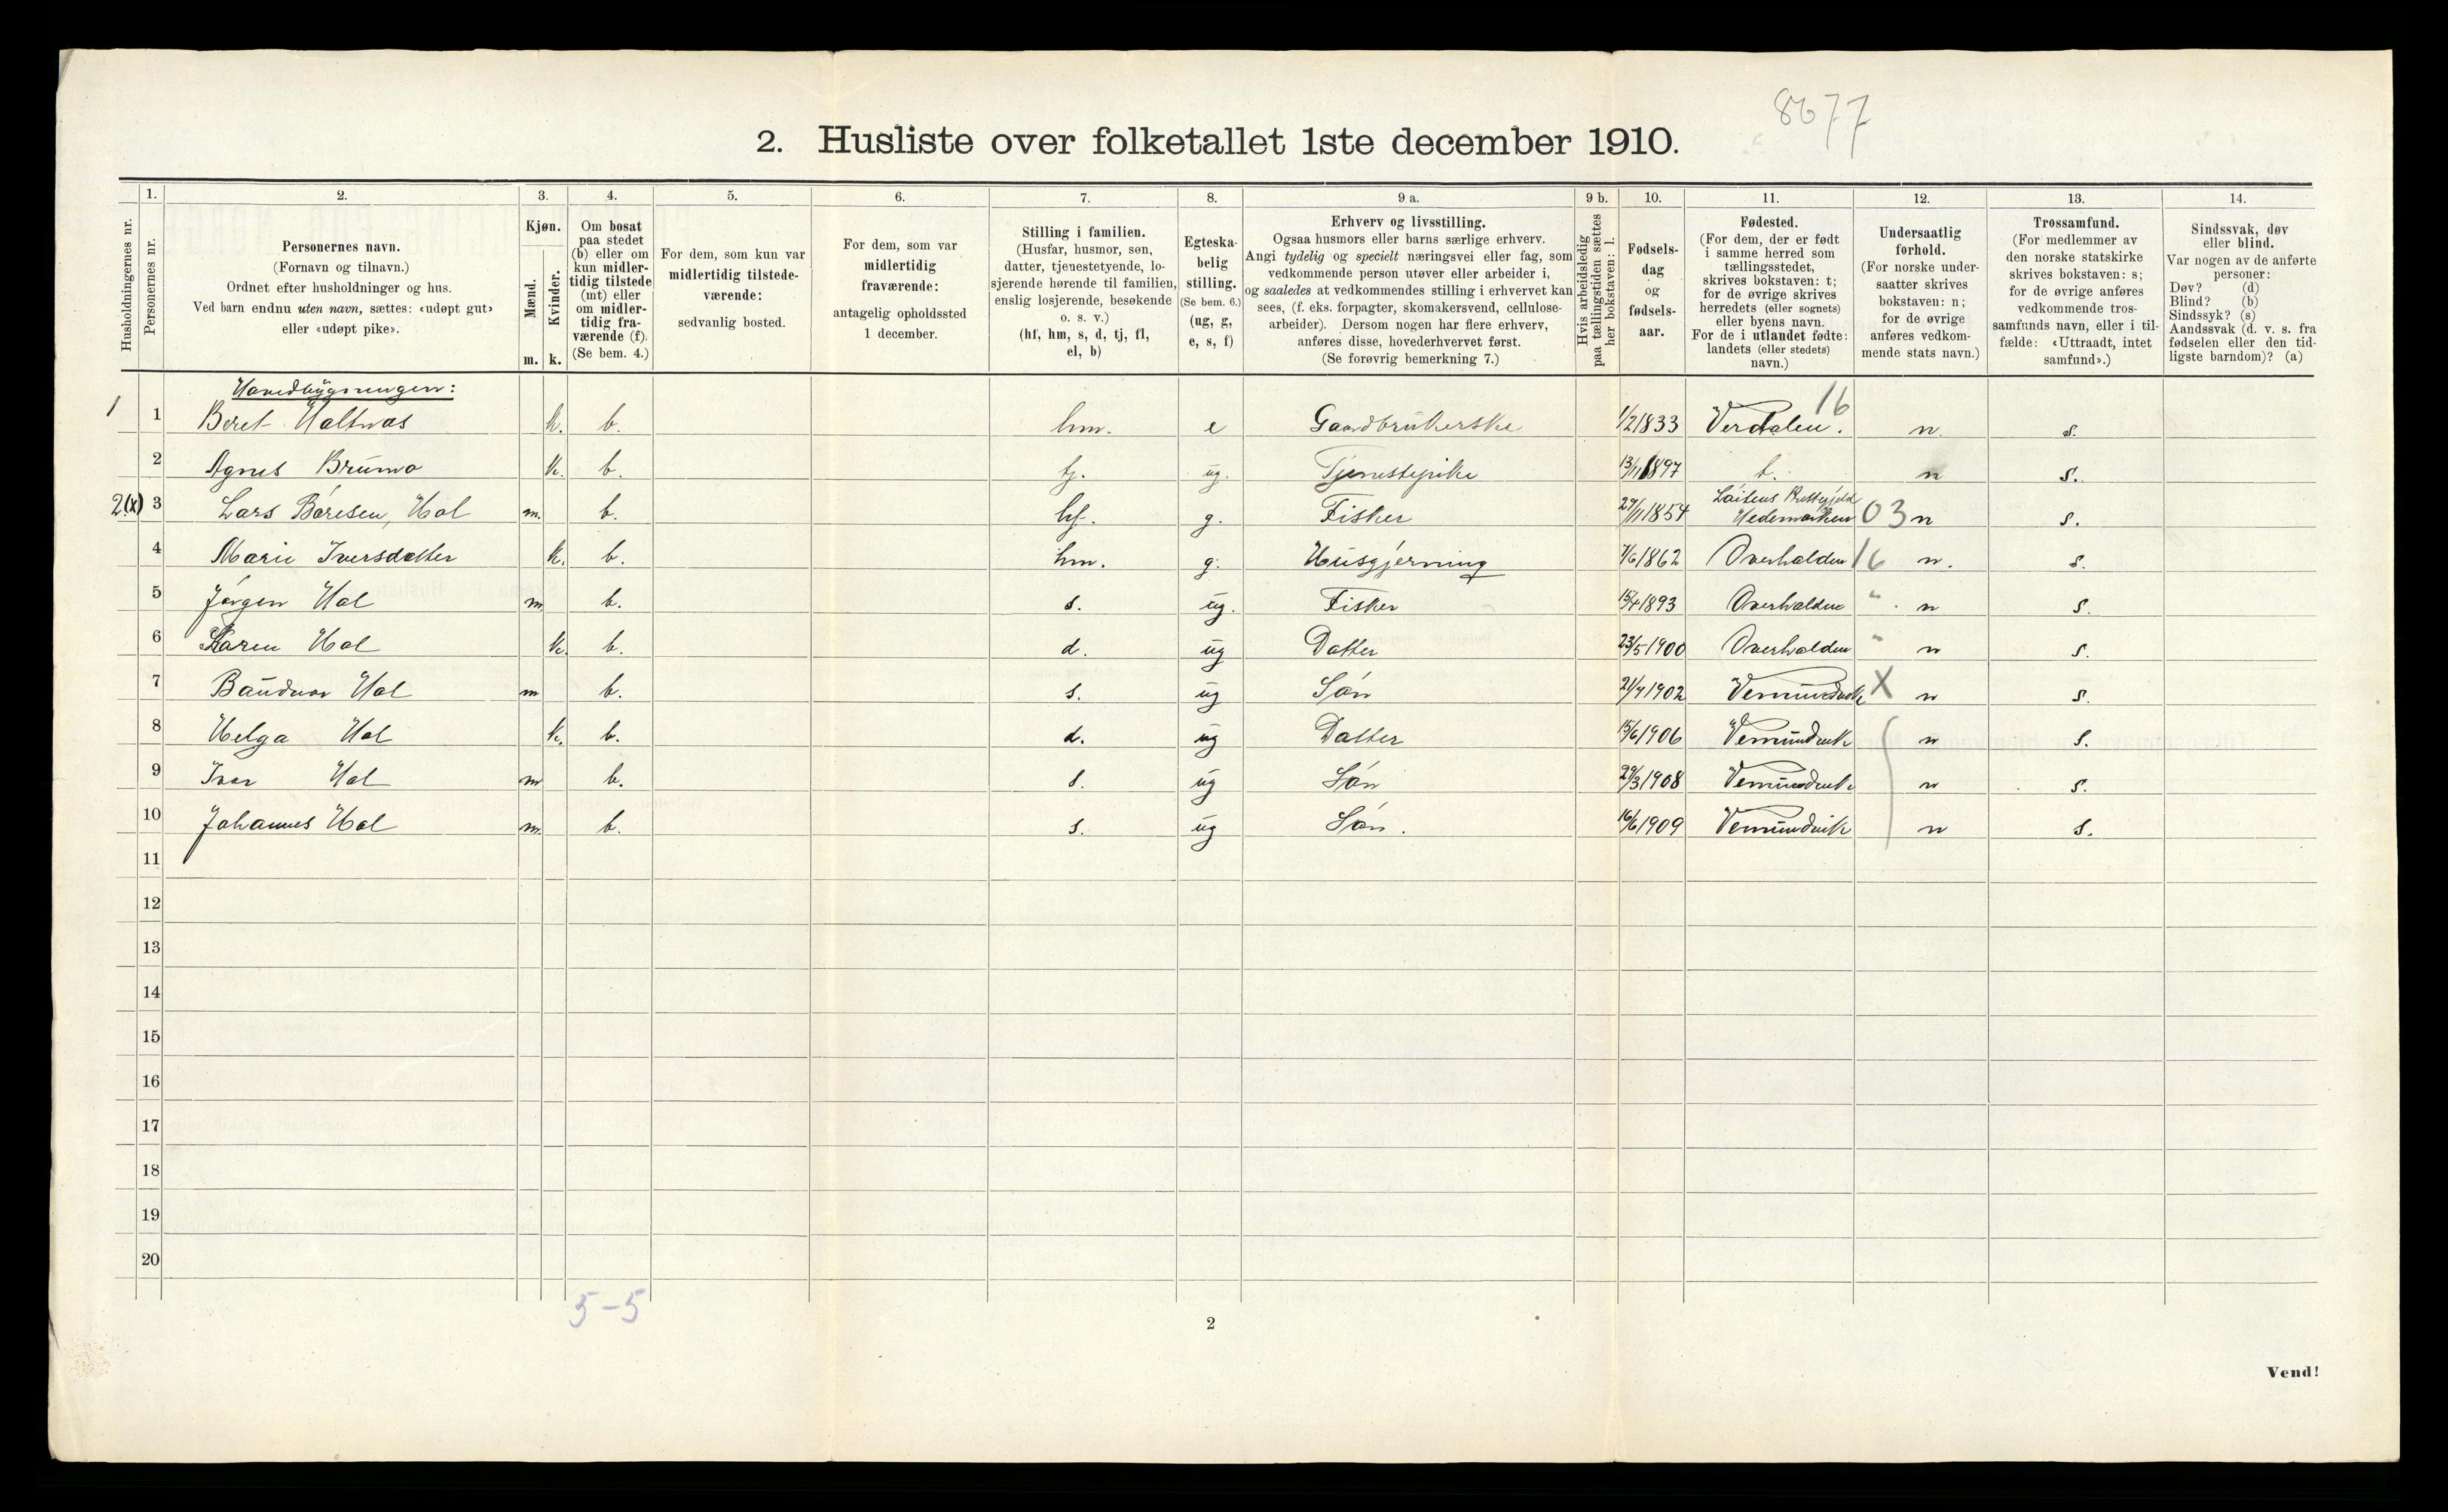 8677
2. Husliste over folketallet 1ste december 1910.
Husholdningernes nr.
1. Personernes nr.
2. Personernes navn.
(Fornavn og tilnavn.)
Ordnet efter husholdninger og hus.
Ved barn endnu uten navn, sættes: «udøpt gut»
eller «udøpt pike».
3. Kjøn.
Mænd. Kvinder.
m. k.
4. Om bosat
paa stedet
(b) eller om
kun midler-
tidig tilstede
(mt) eller
om midler-
tidig fra-
værende (f).
(Se bem. 4.)
5. For dem, som kun var
midlertidig tilstede-
værende:
sedvanlig bosted.
6. For dem, som var
midlertidig
fraværende:
antagelig opholdssted
1 december.
7. Stilling i familien.
(Husfar, husmor, søn,
datter, tjenestetyende, lo-
sjerende hørende til familien,
enslig losjerende, besøkende
o. s. v.)
(hf, hm, s, d, tj, fl,
el, b)
8. Egteska-
belig
stilling.
(Se bem. 6.)
(ug, g,
e, s, f)
9 a. Erhverv og livsstilling.
Ogsaa husmors eller barns særlige erhverv.
Angi tydelig og specielt næringsvei eller fag, som
vedkommende person utøver eller arbeider i,
og saaledes at vedkommendes stilling i erhvervet kan
sees, (f. eks. forpagter, skomakersvend, cellulose-
arbeider). Dersom nogen har flere erhverv,
anføres disse, hovederhvervet først.
(Se forøvrig bemerkning 7.)
9 b. Hvis arbeidsledig
paa tællingstiden sættes
her bokstaven: l.
10. Fødsels-
dag
og
fødsels-
aar.
11. Fødested.
(For dem, der er født
i samme herred som
tællingsstedet,
skrives bokstaven: t;
for de øvrige skrives
herredets (eller sognets)
eller byens navn.
For de i utlandet fødte:
landets (eller stedets)
navn.)
12. Undersaatlig
forhold.
(For norske under-
saatter skrives
bokstaven: n;
for de øvrige
anføres vedkom-
mende stats navn.)
13. Trossamfund.
(For medlemmer av
den norske statskirke
skrives bokstaven: s;
for de øvrige anføres
vedkommende tros-
samfunds navn, eller i til-
fælde: «Uttraadt, intet
samfund».)
14. Sindssvak, døv
eller blind.
Var nogen av de anførte
personer:
Døv? (d)
Blind? (b)
Sindssyk? (s)
Aandssvak (d. v. s. fra
fødselen eller den tid-
ligste barndom)? (a)
Hovedbygningen:
1 1 Beret k. b. hm. e Gaardbrukerske 1/2 1833 Verdalen. 16 n. s.
2 Agnes k. b. tj. ug. Tjenestepike 13/11 1897 t. n s.
2(x) 3 Lars Bóresen, Hol m. b. hf. g. Fisker 27/11 1854 Hedemarken 03 n s.
4 Marie Iversdatter k. b. hm. g. Husgjerning 7/6 1862 Overhalden 16 n. s.
5 Jórgen Hol m. b. s. ug. Fisker 15/4 1893 Overhalden " n s.
6 Karen Hol k. b. d. ug Datter 23/5 1900 Overhalden " n s.
7 Hol m b. s. ug Són 21/4 1902 Vemundvik X n s.
8 Helga Hol k. b. d. ug Datter 15/6 1906 Vemundvik n s.
9 Ivar Hol m b. s. ug Són 29/3 1908 Vemundvik n s.
10 Johannes Hol m. b. s. ug Són. 16/6 1909 Vemundvik n s.
11
12
13
14
15
16
17
18
19
20
5-5
2
Vend!